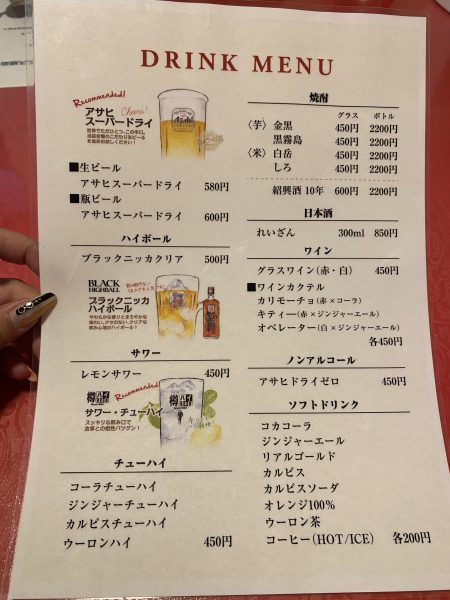 DRINK MENU
Recommended!
アサヒ
スーパードライ
Cheers!
世界でただひとつ、この辛口。
Asahi
■生ビール
アサヒスーパードライ 580円
■瓶ビール
アサヒスーパードライ 600円
ハイボール
ブラックニッカクリア 500円
BLACK
HIGHBALL
ブラックニッカ
ハイボール
やわらかな香りとまろやかな
味わい。クセのない、クリアな
飲み心地のハイボール!
サワー
レモンサワー 450円
Recommended!
樽ハイ
サワー・チューハイ
スッキリな飲み口で
食事との相性バツグン!
チューハイ
コーラチューハイ
ジンジャーチューハイ
カルピスチューハイ
ウーロンハイ 450円
焼酎
グラス ボトル
〈芋〉金黒 450円 2200円
黒霧島 450円 2200円
〈米〉白岳 450円 2200円
しろ 450円 2200円
紹興酒 10年 600円 2200円
日本酒
れいざん 300ml 850円
ワイン
グラスワイン(赤・白) 450円
■ワインカクテル
カリモーチョ(赤×コーラ)
キティー(赤×ジンジャーエール)
オペレーター(白×ジンジャーエール)
各450円
ノンアルコール
アサヒドライゼロ 450円
ソフトドリンク
コカコーラ
ジンジャーエール
リアルゴールド
カルピス
カルピスソーダ
オレンジ100%
ウーロン茶
コーヒー(HOT/ICE) 各200円